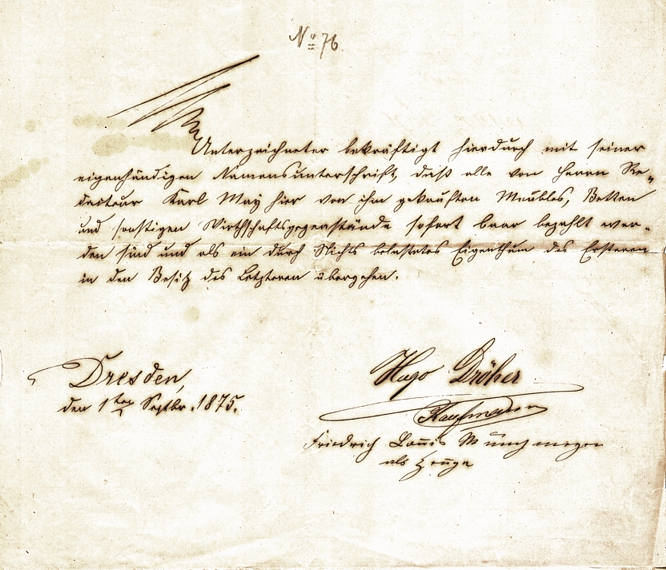 No 76.
Unterzeichneter bekräftigt hierdurch mit seiner
eigenhändigen Namensunterschrift, daß alle von Herrn Re-
dacteur Karl May hier von ihm gekauften Meubles, Betten
und sonstigen Wirthschaftsgegenstände sofort baar bezahlt wor-
den sind und als ein durch Nichts belastetes Eigenthum des Ersteren
in den Besitz des Letzteren übergehen.
Dresden,
den 1ten Septbr. 1875.
Hugo Dröher
Kaufmann
Friedrich Louis Münchmeyer
als Zeuge